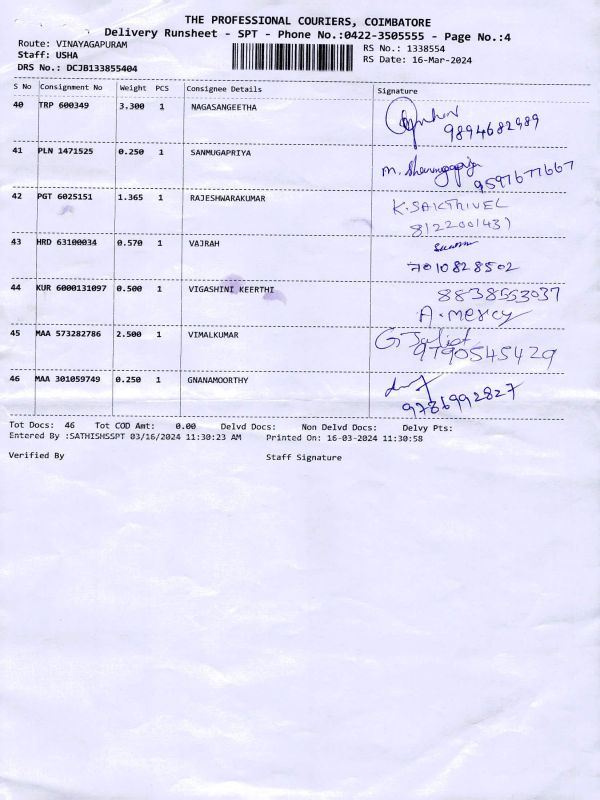 THE PROFESSIONAL COURIERS, COIMBATORE
Delivery Runsheet - SPT - Phone No.:0422-3505555 - Page No.:4
Route: VINAYAGAPURAM RS No.: 1338554
Staff: USHA RS Date: 16-Mar-2024
DRS No.: DCJB133855404
S No Consignment No Weight PCS Consignee Details Signature
40 TRP 600349 3.300 1 NAGASANGEETHA
9894682989
41 PLN 1471525 0.250 1 SANMUGAPRIYA M.
9597677667
42 PGT 6025151 1.365 1 RAJESHWARAKUMAR K. SAKTHIVEL
8122001431
43 HRD 63100034 0.570 1 VAJRAH
7010828502
44 KUR 6000131097 0.500 1 VIGASHINI KEERTHI 8838553037
A. Mercy
45 MAA 573282786 2.500 1 VIMALKUMAR G.
9790545429
46 MAA 301059749 0.250 1 GNANAMOORTHY
9786992827
Tot Docs: 46 Tot COD Amt: 0.00 Delvd Docs: Non Delvd Docs: Delvy Pts:
Entered By :SATHISHSSPT 03/16/2024 11:30:23 AM Printed On: 16-03-2024 11:30:58
Verified By Staff Signature